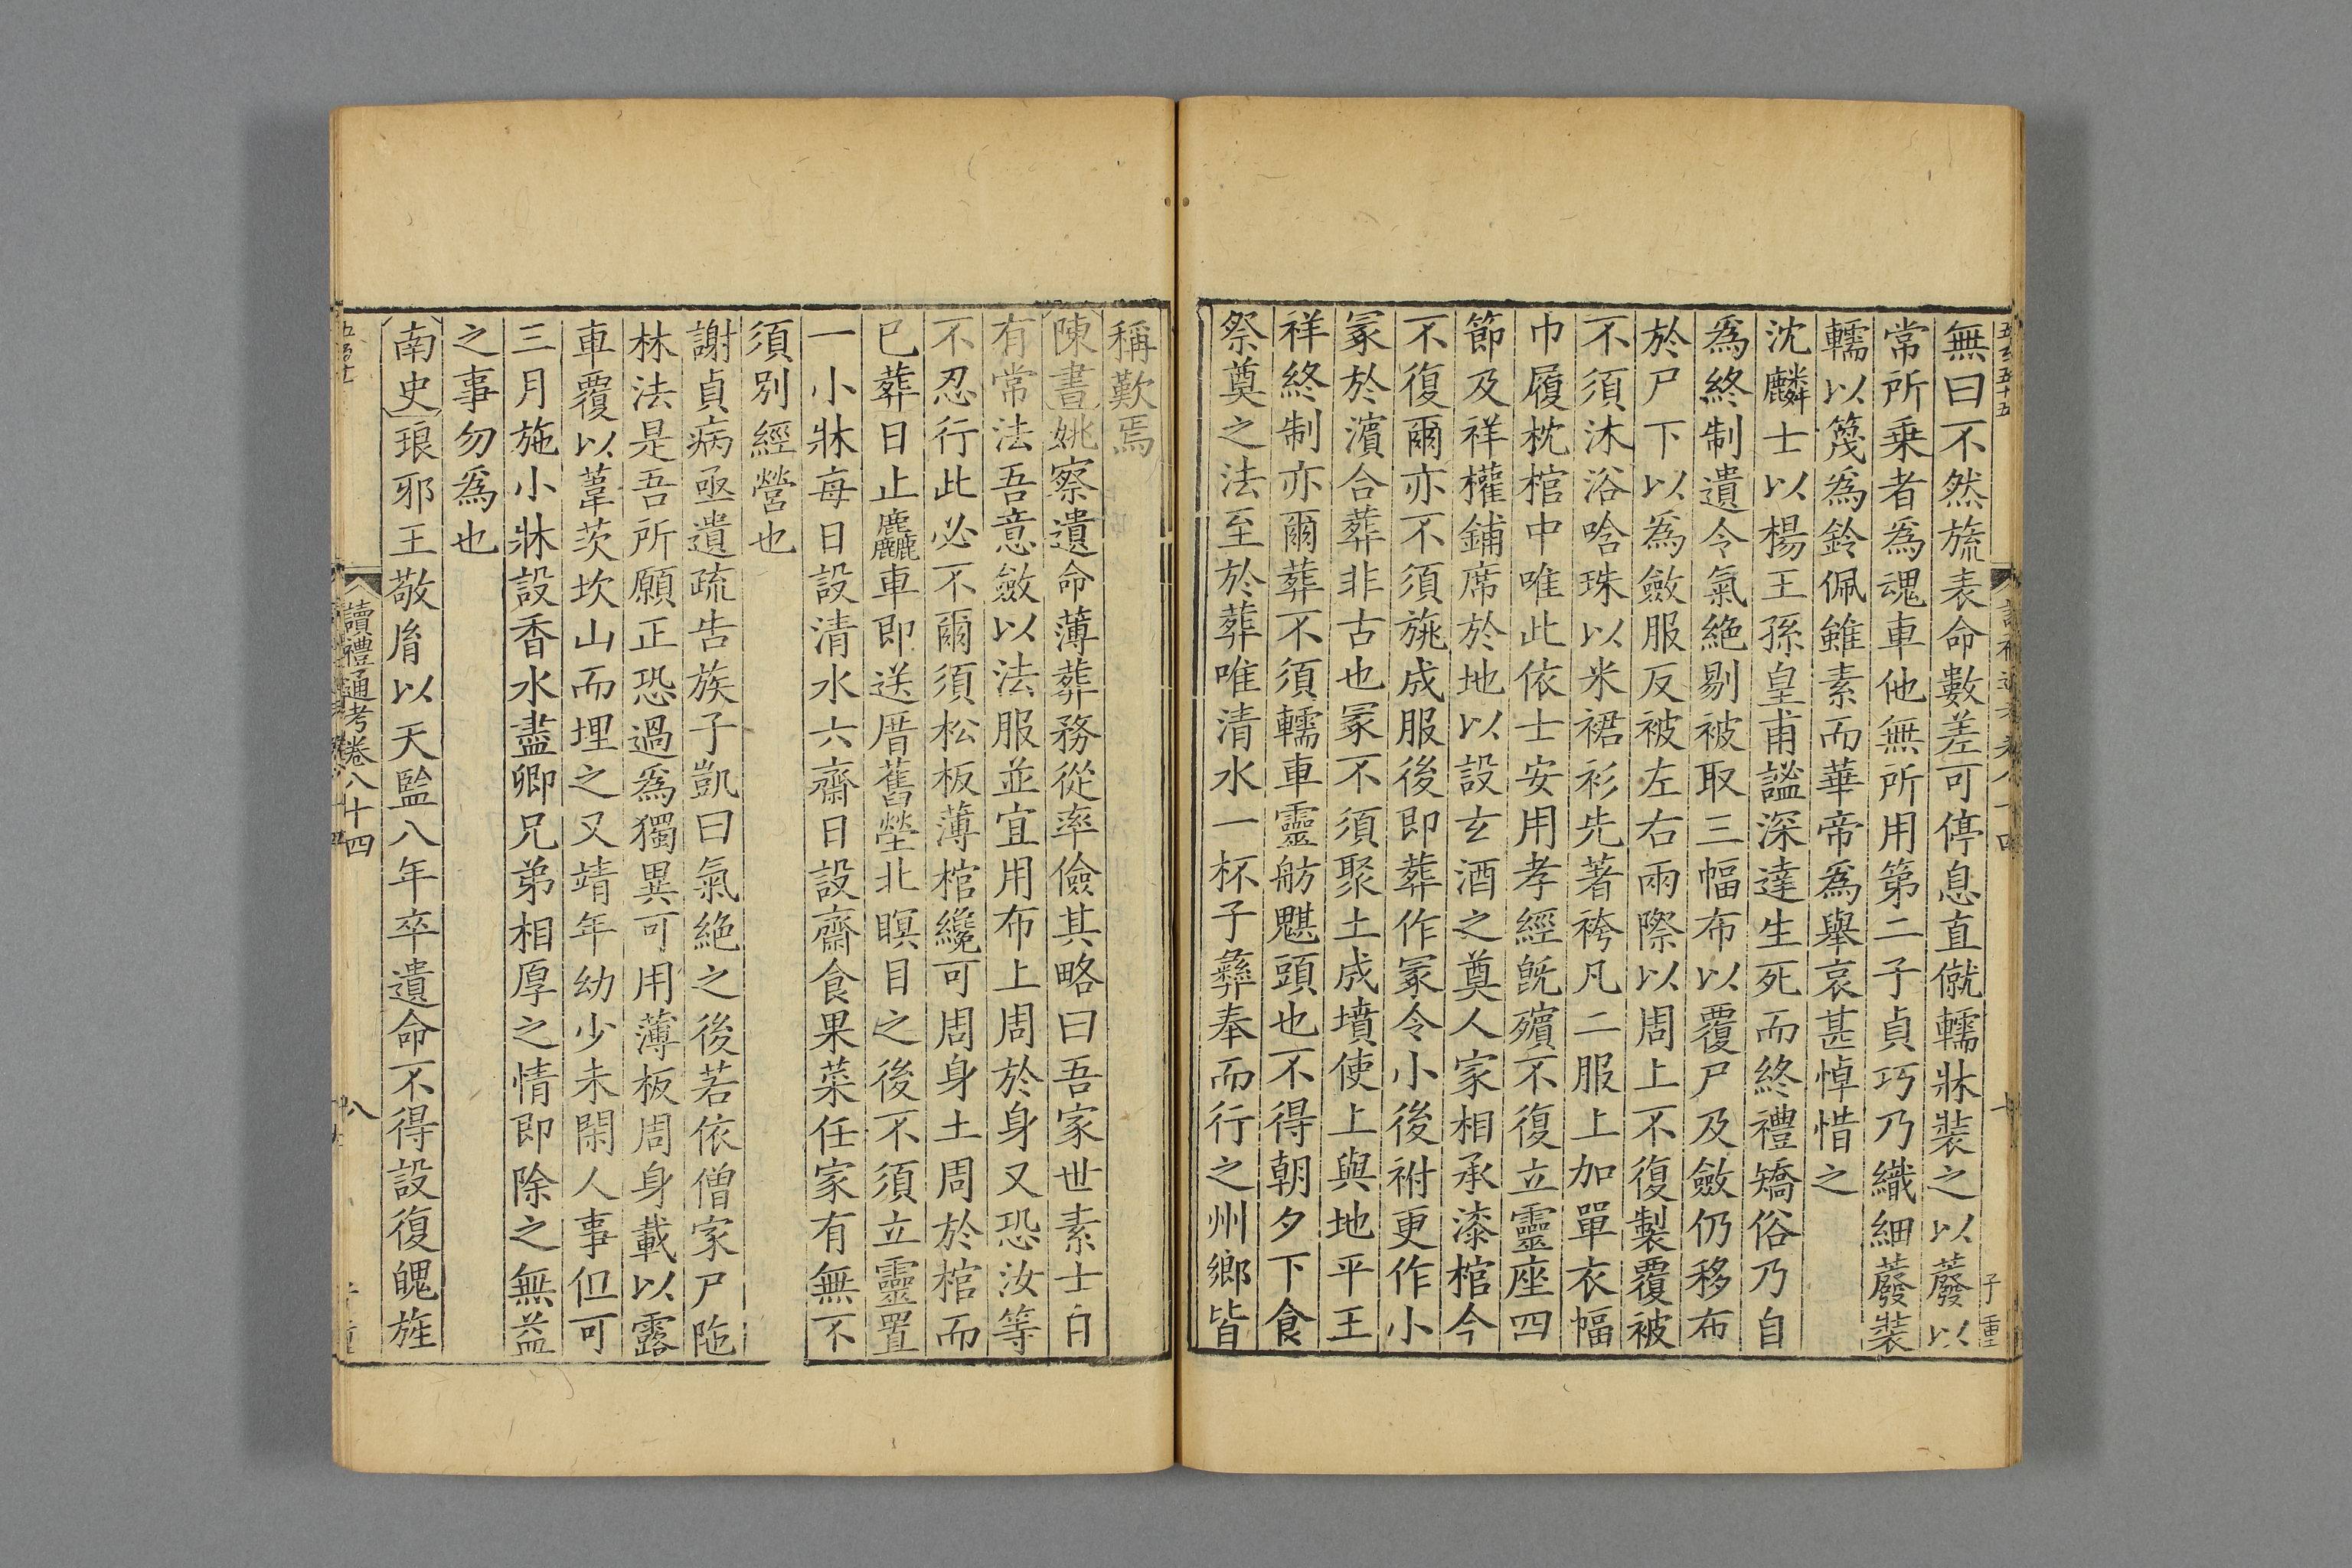 無曰不然旒表命數差可停息直僦轜牀裝之以蕟以
常所乗者為魂車他無所用第二子貞巧乃織細蕟裝
轜以篾為鈴佩雖素而華帝為舉哀甚悼惜之
沈麟士以楊王孫皇甫謐深達生死而終禮矯俗乃自
為終制遺令氣絕剔被取三幅布以覆尸及斂仍移布
於尸下以為斂服反被左右兩際以周上不復製覆被
不須沐浴唅珠以米裙衫先著袴凡二服上加單衣幅
巾履枕棺中唯此依士安用孝經既殯不復立靈座四
節及祥權鋪席於地以設玄酒之奠人家相承漆棺今
不復爾亦不須旐成服後即葬作冢令小後祔更作小
冢於濵合葬非古也冢不須聚土成墳使上與地平王
祥終制亦爾葬不須轜車靈舫魌頭也不得朝夕下食
祭奠之法至於葬唯清水一杯子彝奉而行之州鄉皆
稱歎焉
陳書姚察遺命薄葬務從率儉其略曰吾家世素士自
有常法吾意斂以法服並宜用布上周於身又恐汝等
不忍行此必不爾須松板薄棺纔可周身土周於棺而
已葬日止麤車即送厝舊塋北瞑目之後不須立靈置
一小牀每日設清水六齋日設齋食果菜任家有無不
須別經營也
謝貞病亟遺疏告族子凱曰氣絕之後若依僧家尸陁
林法是吾所願正恐過為獨異可用薄板周身載以露
車覆以葦茨坎山而埋之又靖年幼少未閑人事但可
三月施小牀設香水盡卿兄弟相厚之情即除之無益
之事勿為也
南史琅邪王敬胤以天監八年卒遺命不得設復魄旌
讀禮通考卷八十四
八